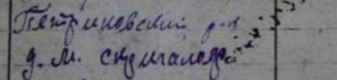 Петриковский р-н
д. м. скригалово